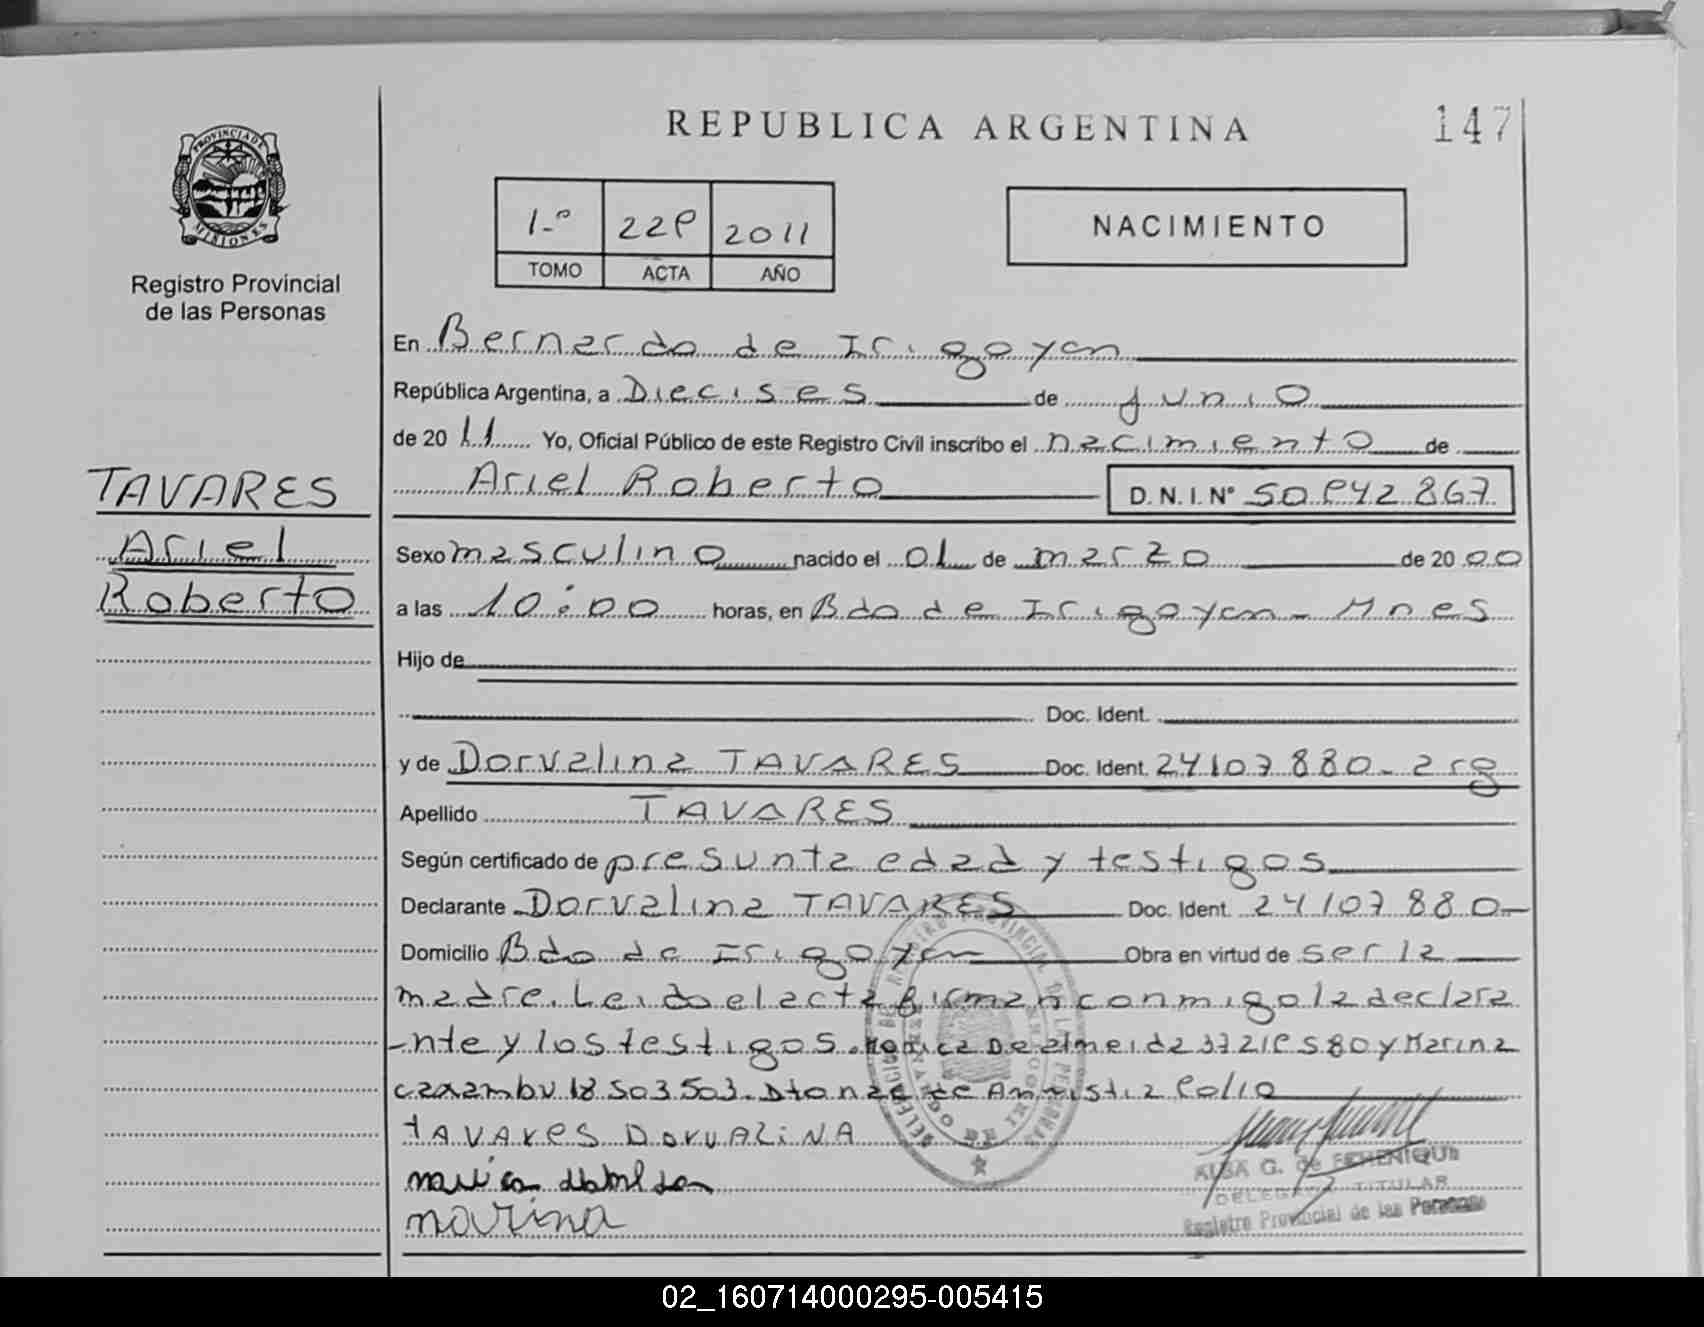 REPUBLICA ARGENTINA
147
PROVINCIA DE
MISIONES
Registro Provincial
de las Personas
1º
2011
TOMO
ACTA
AÑO
NACIMIENTO
En Bernardo de Irigoyen
República Argentina, a Dieciseis de junio
de 2011 Yo, Oficial Público de este Registro Civil inscribo el nacimiento de
TAVARES
Ariel Roberto
D.N.I. Nº
Ariel
Roberto
Sexo masculino nacido el 01 de marzo de 2000
a las 10:00 horas, en Bdo de Irigoyen - Mnes
Hijo de
Doc. Ident.
y de Dorvalina TAVARES Doc. Ident. 24107880- arg
Apellido TAVARES
Según certificado de presunta edad y testigos
Declarante Dorvalina TAVARES Doc. Ident. 24107880-
Domicilio Bdo de Irigoyen Obra en virtud de ser la
madre. Leido el acta firman conmigo la declara
-nte y los testigos. De almeida y Marina
caxambu 18503503.
TAVARES DORVALINA
marina
ALBA G. de
DELEGADA TITULAR
Registro Provincial de las Personas
02_160714000295-005415